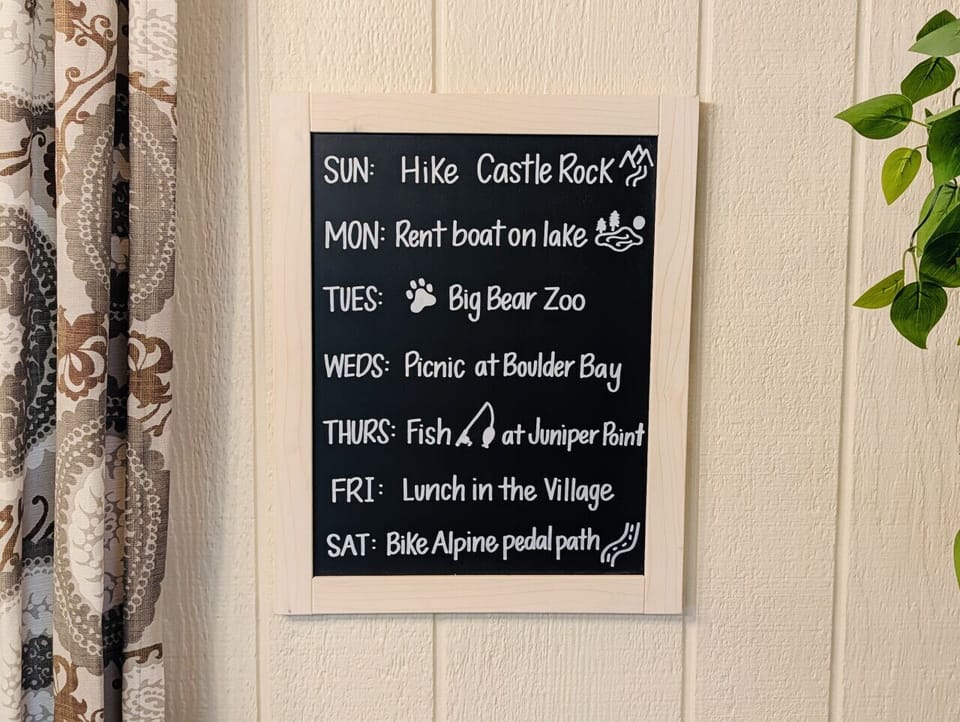 SUN: Hike Castle Rock
MON: Rent boat on lake
TUES: Big Bear Zoo
WEDS: Picnic at Boulder Bay
THURS: Fish at Juniper Point
FRI: Lunch in the Village
SAT: Bike Alpine pedal path